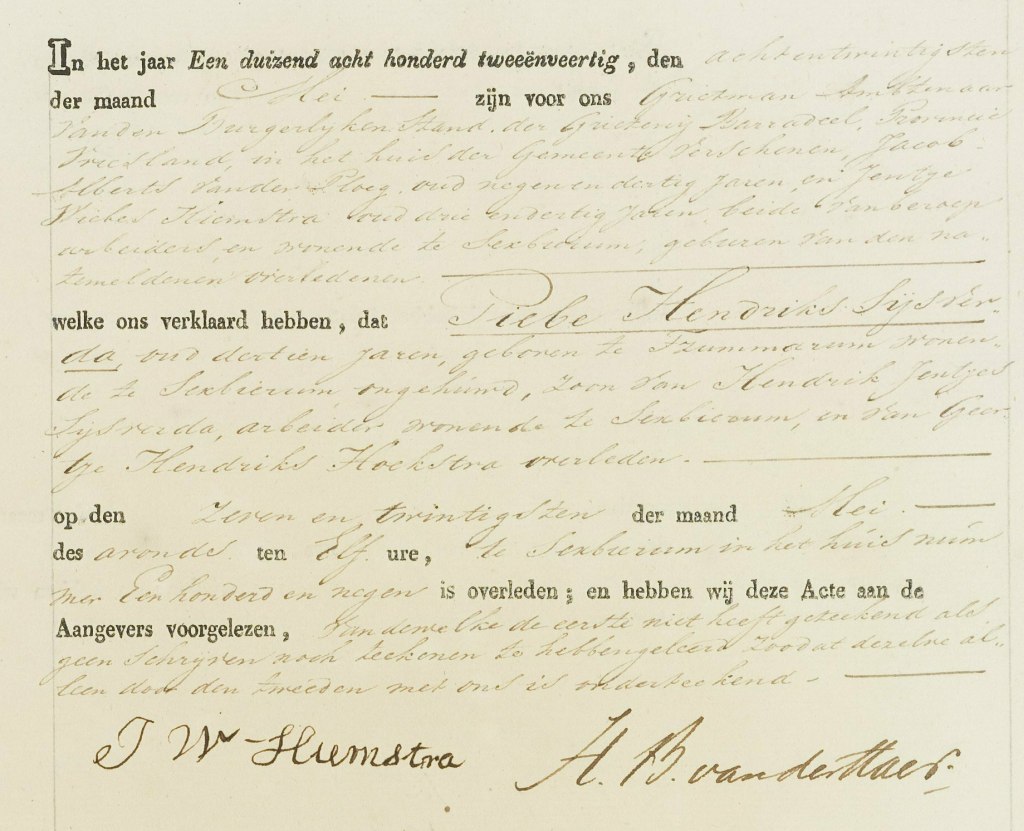 In het jaar Een duizend acht honderd tweeënveertig, den achtentwintigsten
der maand Mei — zijn voor ons Grietman Ambtenaar
van den Burgerlyken Stand, der Grietenij Barradeel, Provincie
Vriesland, in het huis der Gemeente verschenen, Jacob
Alberts van der Ploeg, oud negen en dertig Jaren, en Jentje
Wiebes Hiemstra oud drie en dertig Jaren, beide van beroep
arbeiders, en wonende te Sexbierum, geburen van den na-
temeldenen overledenen
welke ons verklaard hebben, dat Piebe Hendriks Sijsver-
da, oud dertien Jaren, geboren te Tzummarum wonen-
de te Sexbierum ongehuwd, zoon van Hendrik Jentjes
Sijsverda, arbeider wonende te Sexbierum, en van Geer-
tje Hendriks Hoekstra overleden. —
op den zeven en twintigsten der maand Mei. —
des avonds ten Elf ure, te Sexbierum in het huis num
mer Een honderd en negen is overleden; en hebben wij deze Acte aan de
Aangevers voorgelezen, van dewelke de eerste niet heeft geteekend als
geen schryven noch teekenen te hebben geleerd zoodat dezelve al-
leen door den tweeden met ons is onderteekend — —
J W Hiemstra H. B. van der Haer.